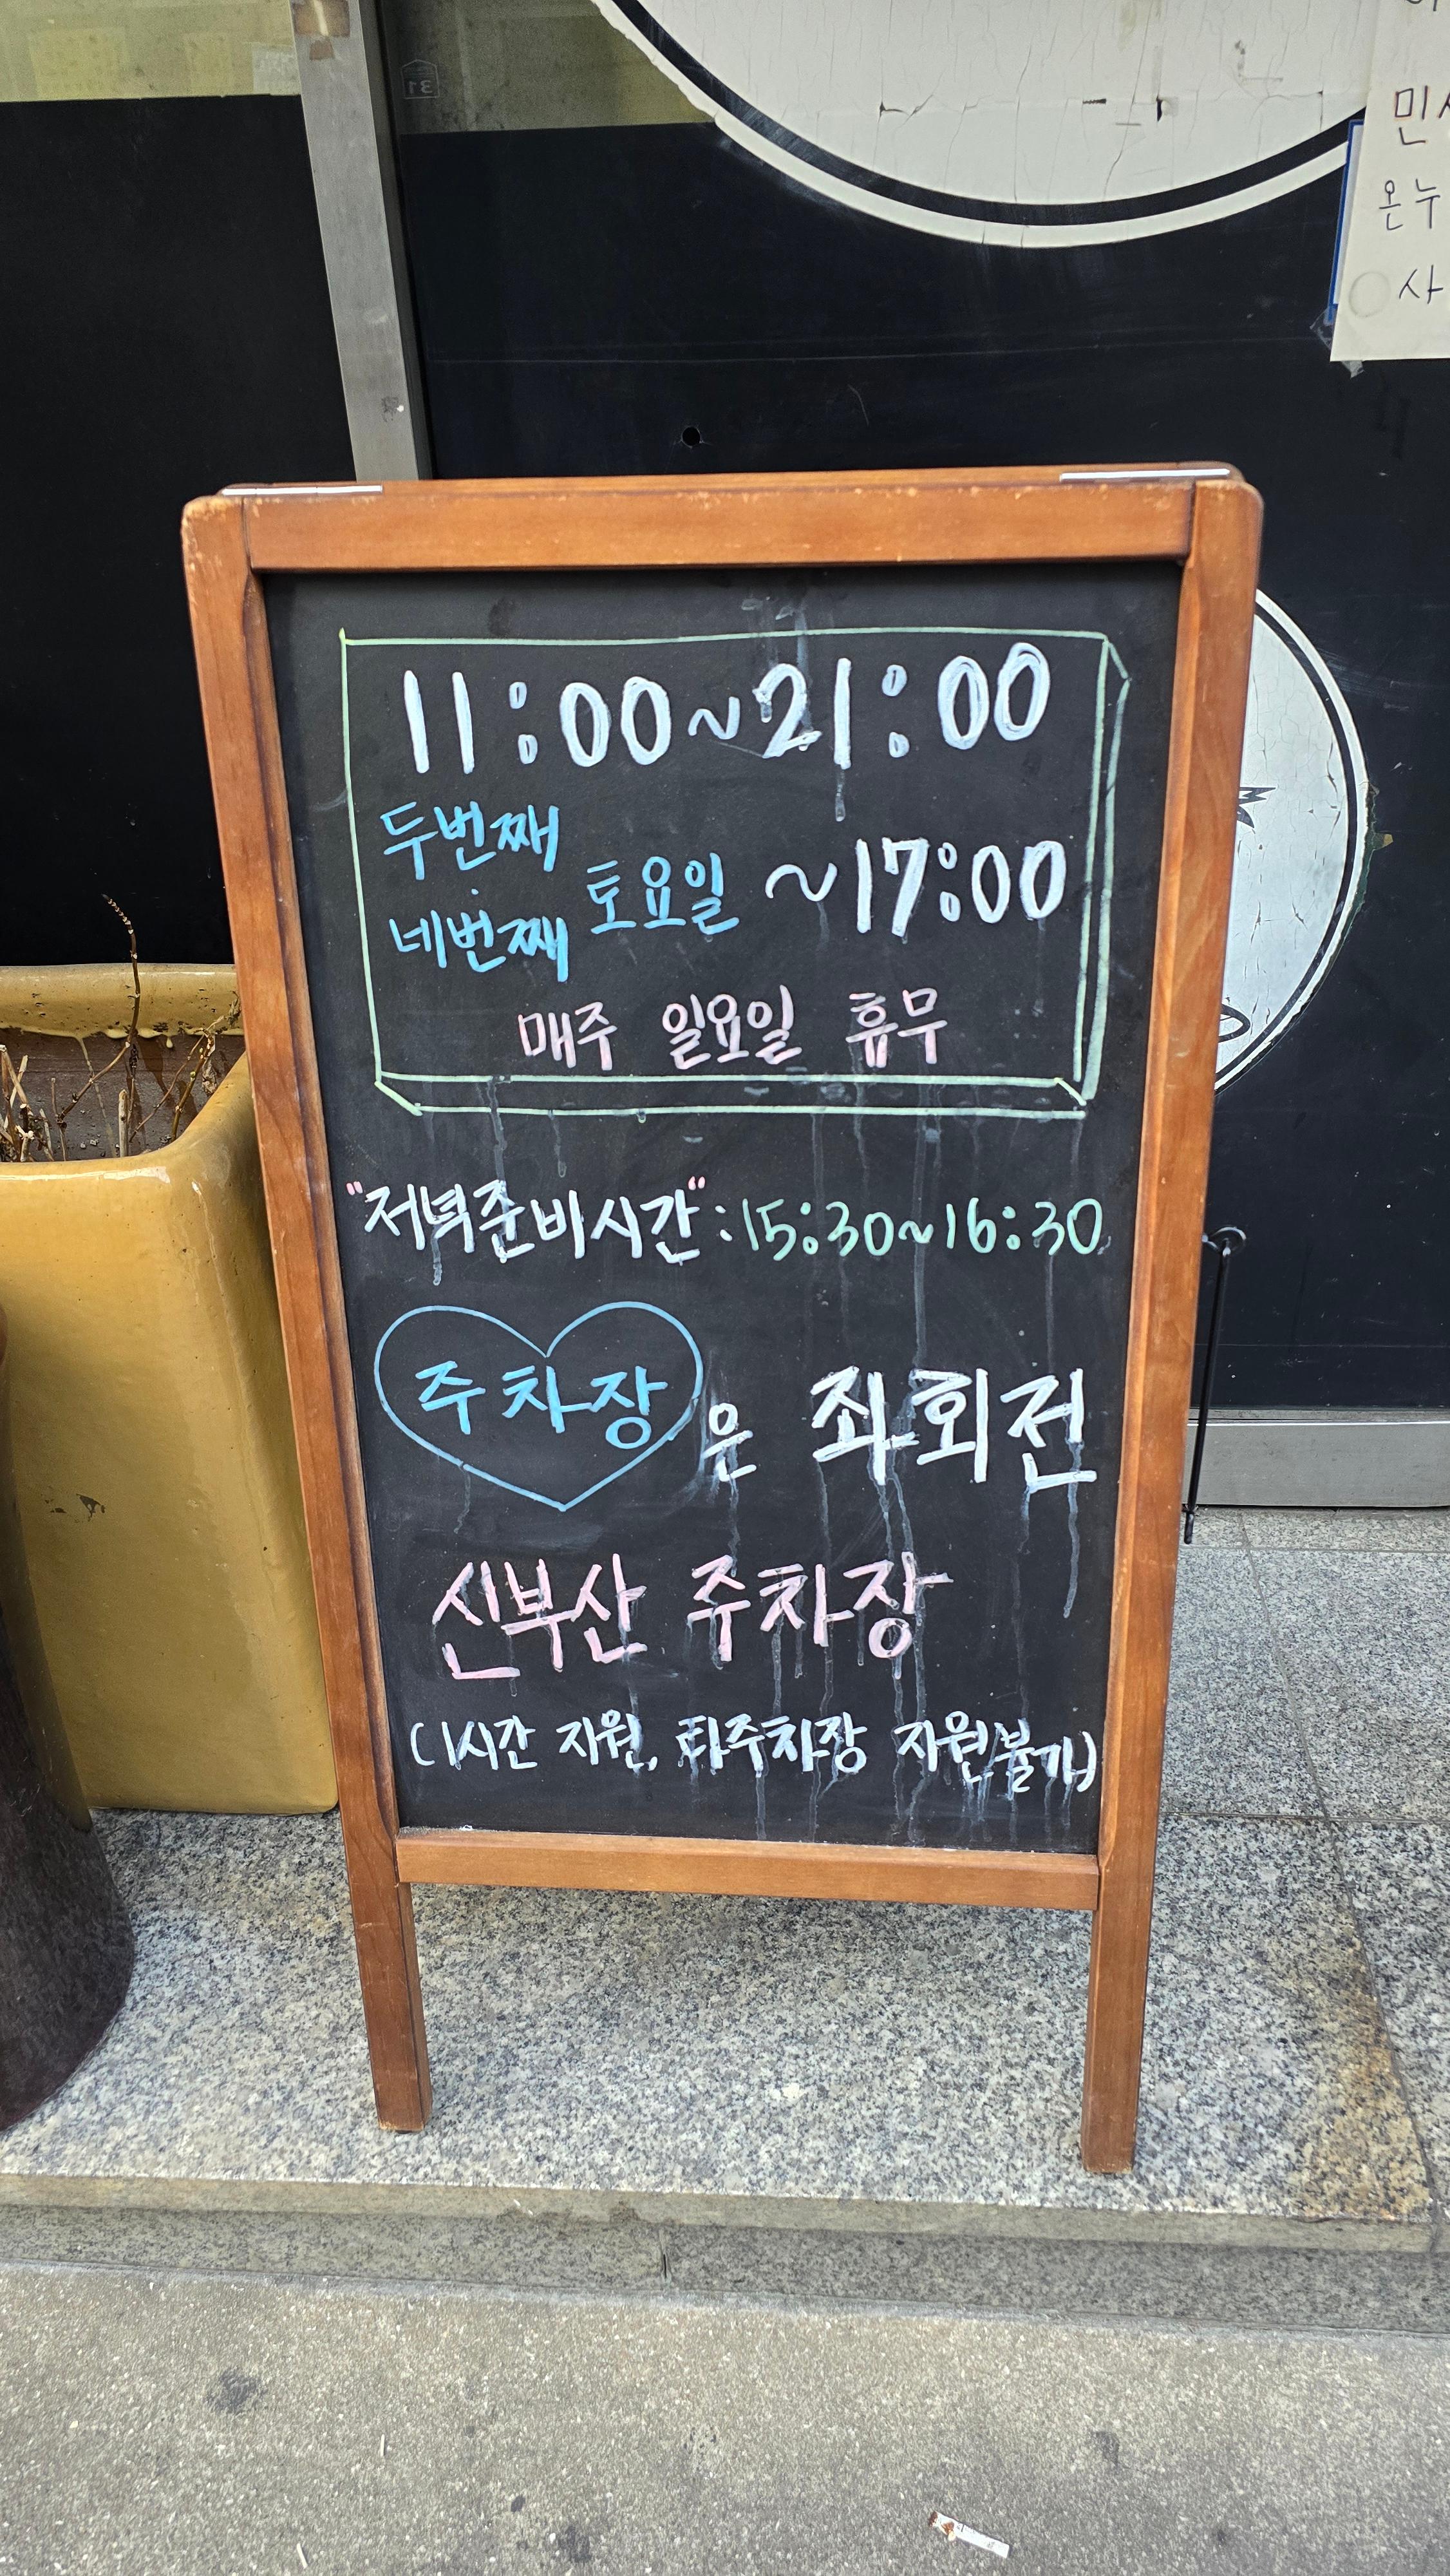 11:00~21:00
두번째
네번째
토요일 ~17:00
매주 일요일 휴무
"저녁준비시간":15:30~16:30
주차장은 좌회전
신부산 주차장
(1시간 지원, 타주차장 지원불가)
민
온누
사